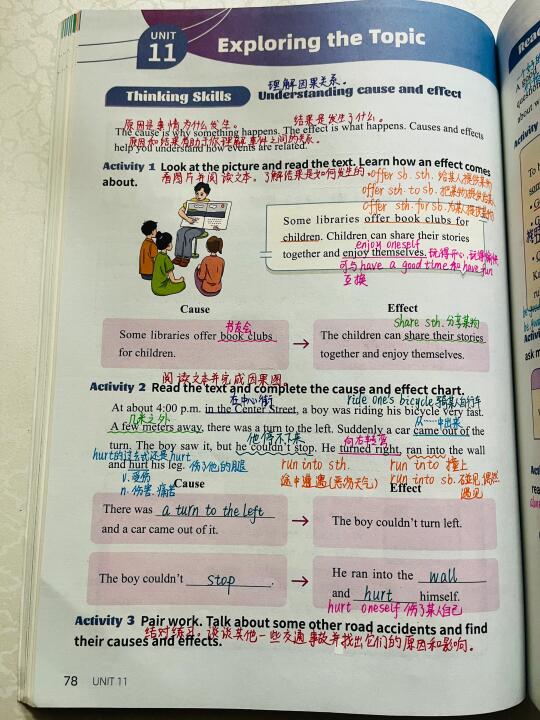 UNIT
11
Exploring the Topic
理解因果关系。
Thinking Skills Understanding cause and effect
原因是事情为什么发生。 结果是发生了什么。
The cause is why something happens. The effect is what happens. Causes and effects
原因和结果有助于你理解事件之间的关系。
help you understand how events are related.
Activity 1 Look at the picture and read the text. Learn how an effect comes
about.
看图片并阅读文本。了解结果是如何发生的。
offer sb. sth. 给某人提供某物
offer sth. to sb. 把某物提供给某人
offer sth. for sb. 为某人提供某物
Some libraries offer book clubs for
children. Children can share their stories
enjoy oneself
together and enjoy themselves. 玩得开心,玩得愉快
可与 have a good time 和 have fun
互换
Cause Effect
书友会
share sth. 分享某物
Some libraries offer book clubs
for children.
→
The children can share their stories
together and enjoy themselves.
阅读文本并完成因果图
Activity 2 Read the text and complete the cause and effect chart.
在中心街 ride one's bicycle 骑某人自行车
At about 4:00 p.m. in the Center Street, a boy was riding his bicycle very fast.
几米之外 从……中出来
A few meters away, there was a turn to the left. Suddenly a car came out of the
他停不下来 向右转弯
turn. The boy saw it, but he couldn't stop. He turned right, ran into the wall
hurt的过去式还是hurt
and hurt his leg. 伤了他的腿
v. 受伤
n. 伤害、痛苦
run into sth.
途中遭遇(恶劣天气)
run into 撞上
run into sb. 碰见,偶然
遇见
Cause Effect
There was a turn to the left
and a car came out of it.
→
The boy couldn't turn left.
The boy couldn't stop.
→
He ran into the wall
and hurt himself.
hurt oneself 伤了某人自己
Activity 3 Pair work. Talk about some other road accidents and find
结对练习。谈谈其他一些交通事故并找出它们的原因和影响。
their causes and effects.
78 UNIT 11